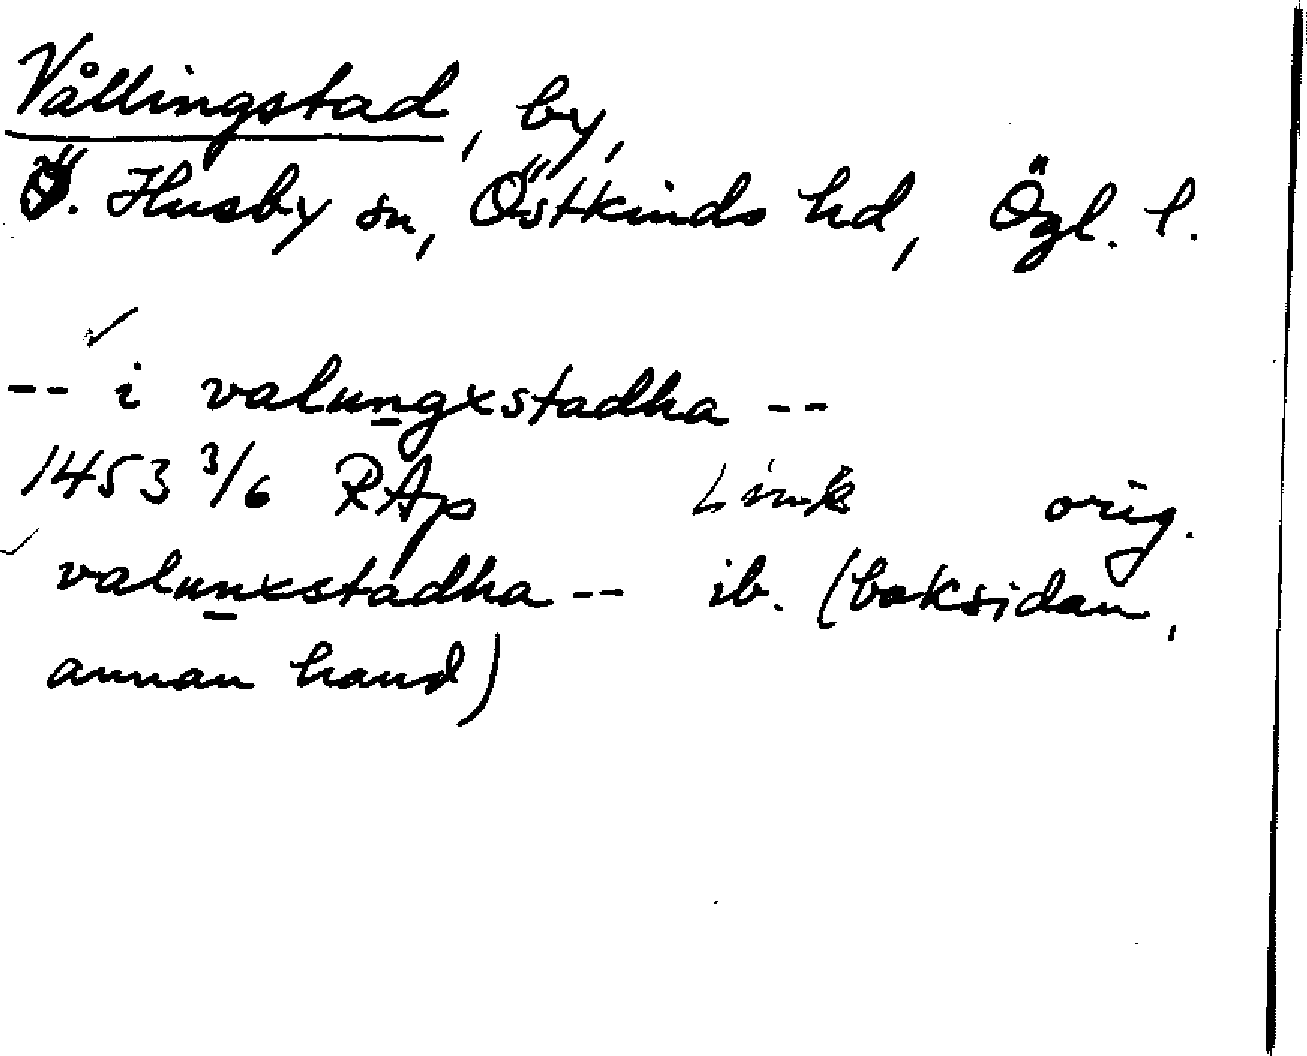 Vållingstad, by,
Ö. Husby sn, Östkinds hd, Ögl. l.
-- i valungxstadha --
1453 3/6 RAp Link orig.
valunxstadha -- ib. (baksidan,
annan hand)